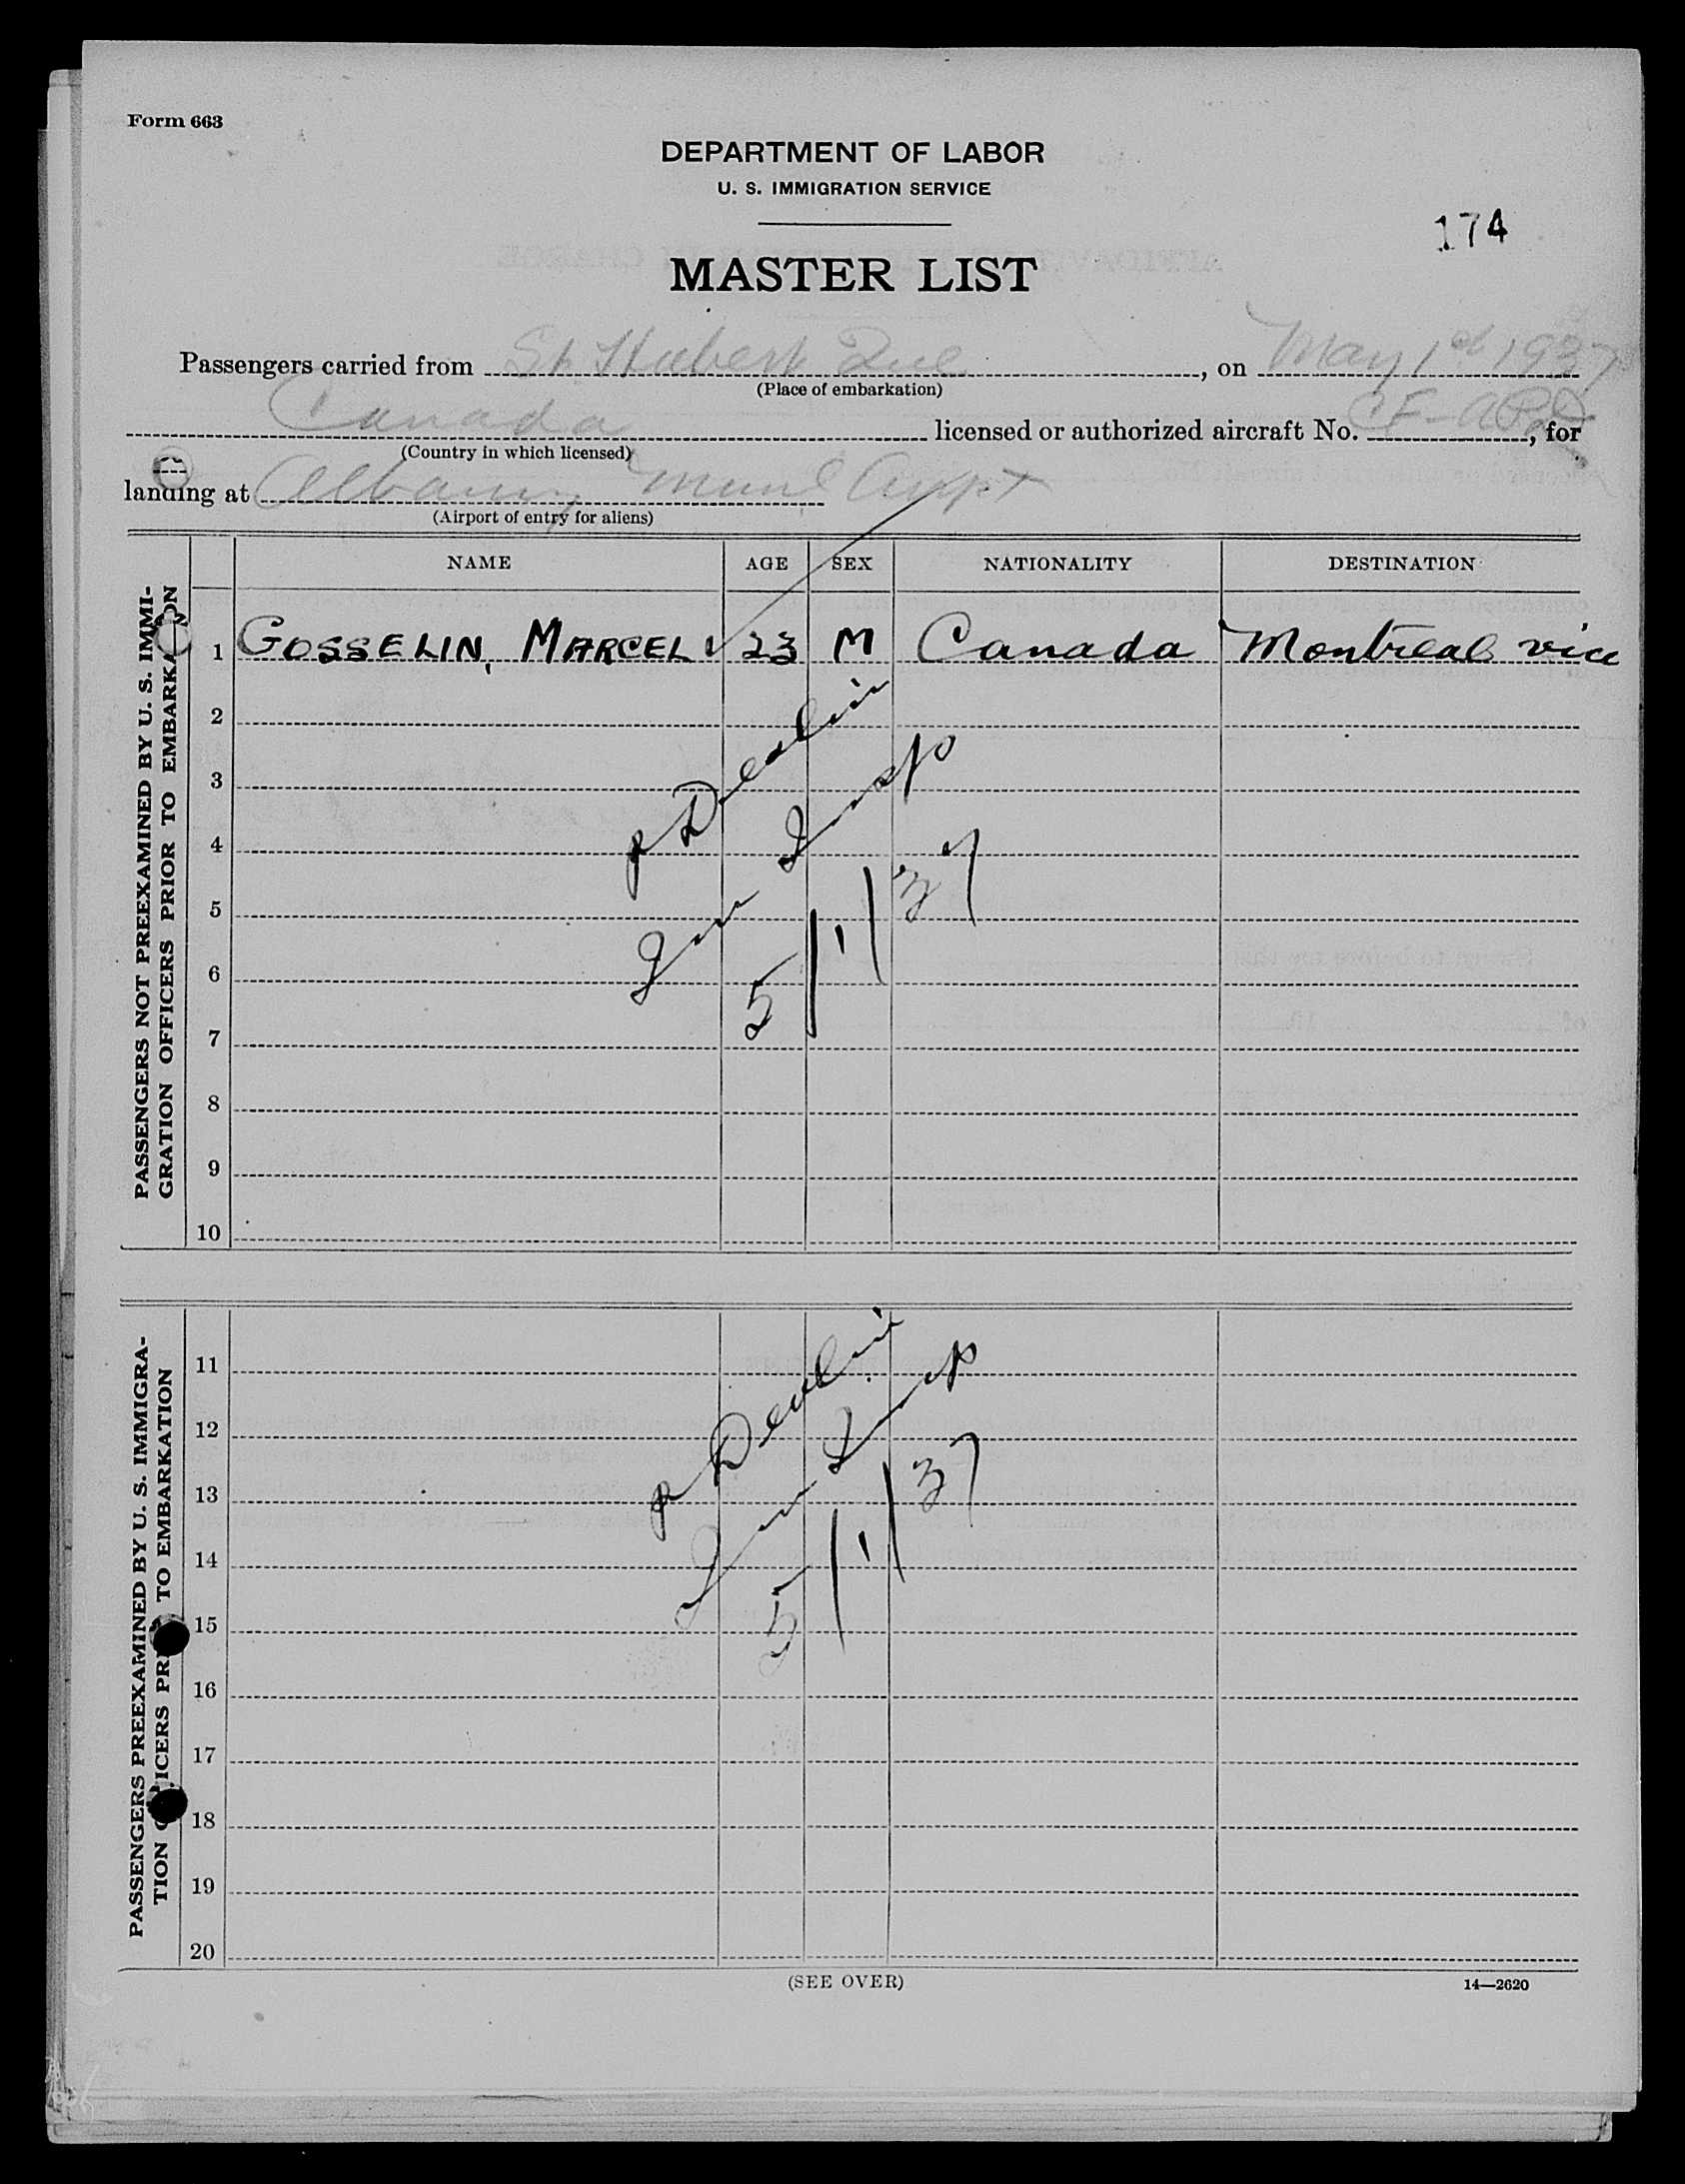 Form 663
DEPARTMENT OF LABOR
U. S. IMMIGRATION SERVICE
174
MASTER LIST
Passengers carried from St. Hubert Que, on May 1st 1937
(Place of embarkation)
Canada licensed or authorized aircraft No. CF-A, for
(Country in which licensed)
landing at Albany Muni Airpt
(Airport of entry for aliens)
NAME AGE SEX NATIONALITY DESTINATION
PASSENGERS NOT PREEXAMINED BY U. S. IMMI-
GRATION OFFICERS PRIOR TO EMBARKATION
1 GOSSELIN, MARCEL 23 M Canada Montreal
2
3
4
5
6
7
8
9
10
Devlin
Imm Insp
5/1/37
PASSENGERS PREEXAMINED BY U. S. IMMIGRA-
TION OFFICERS PRIOR TO EMBARKATION
11
12
13
14
15
16
17
18
19
20
Devlin
Imm Insp
5/1/37
(SEE OVER)
14—2620